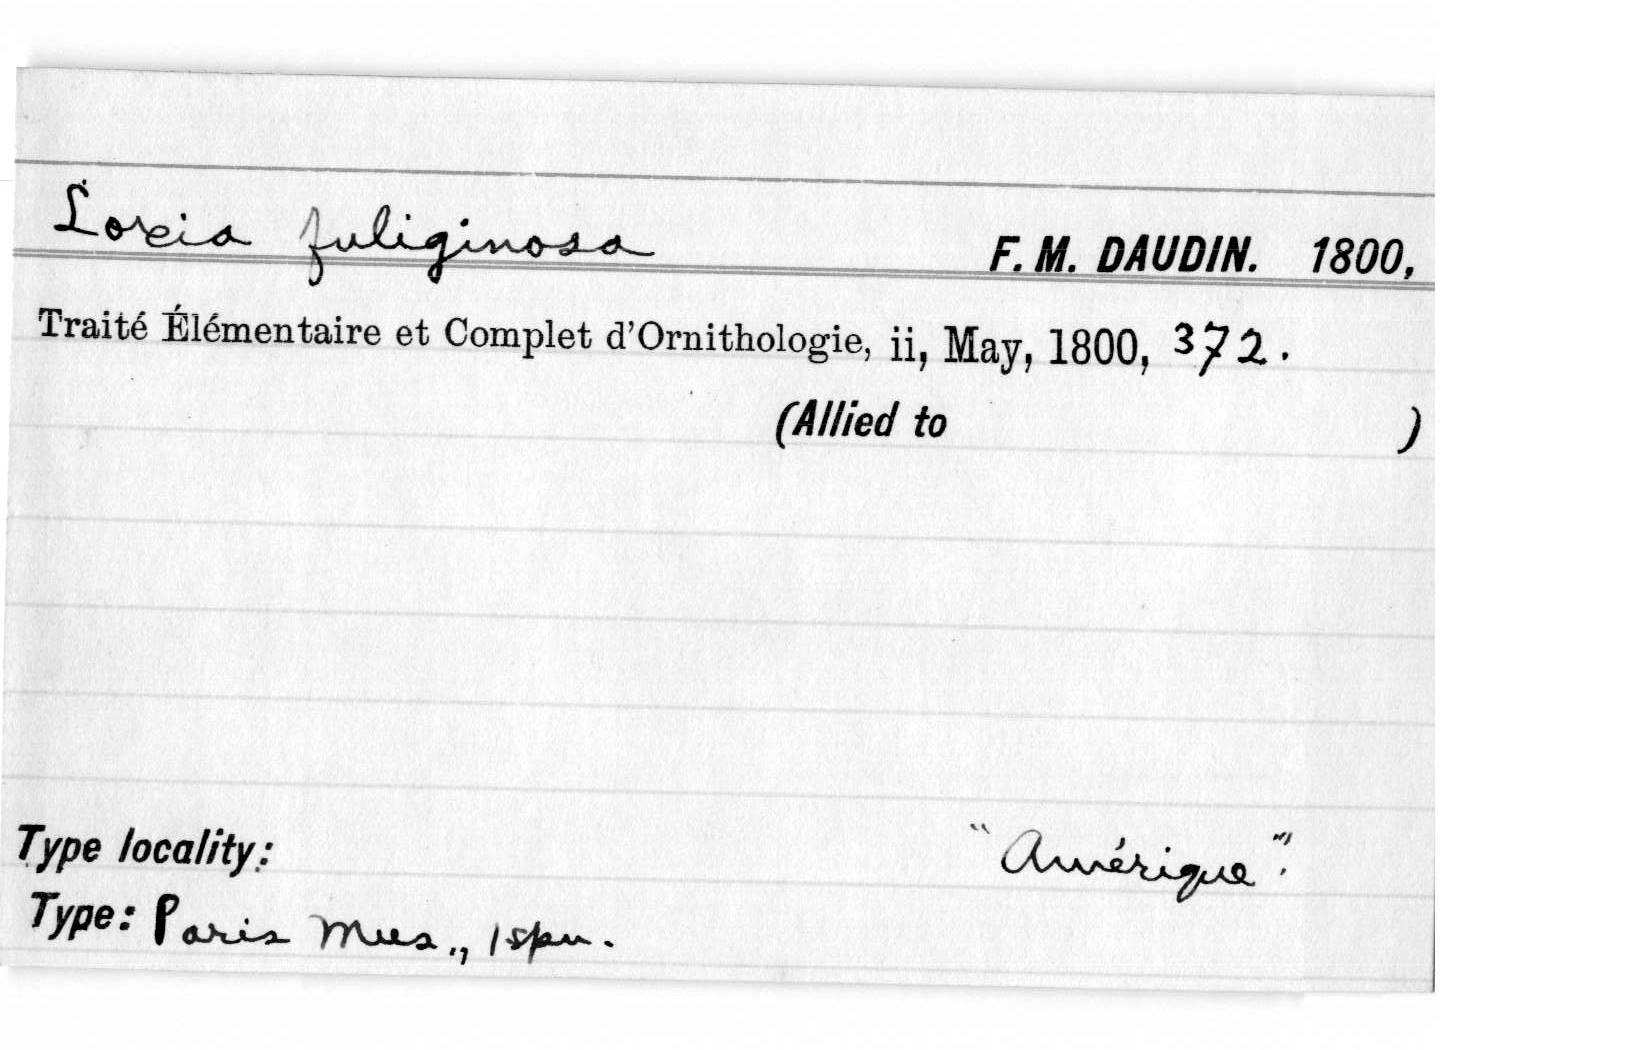 Loxia fuliginosa F. M. DAUDIN. 1800,
Traité Élémentaire et Complet d'Ornithologie, ii, May, 1800, 372.
(Allied to )
Type locality: "Amérique".
Type: Paris Mus., 1 spn.